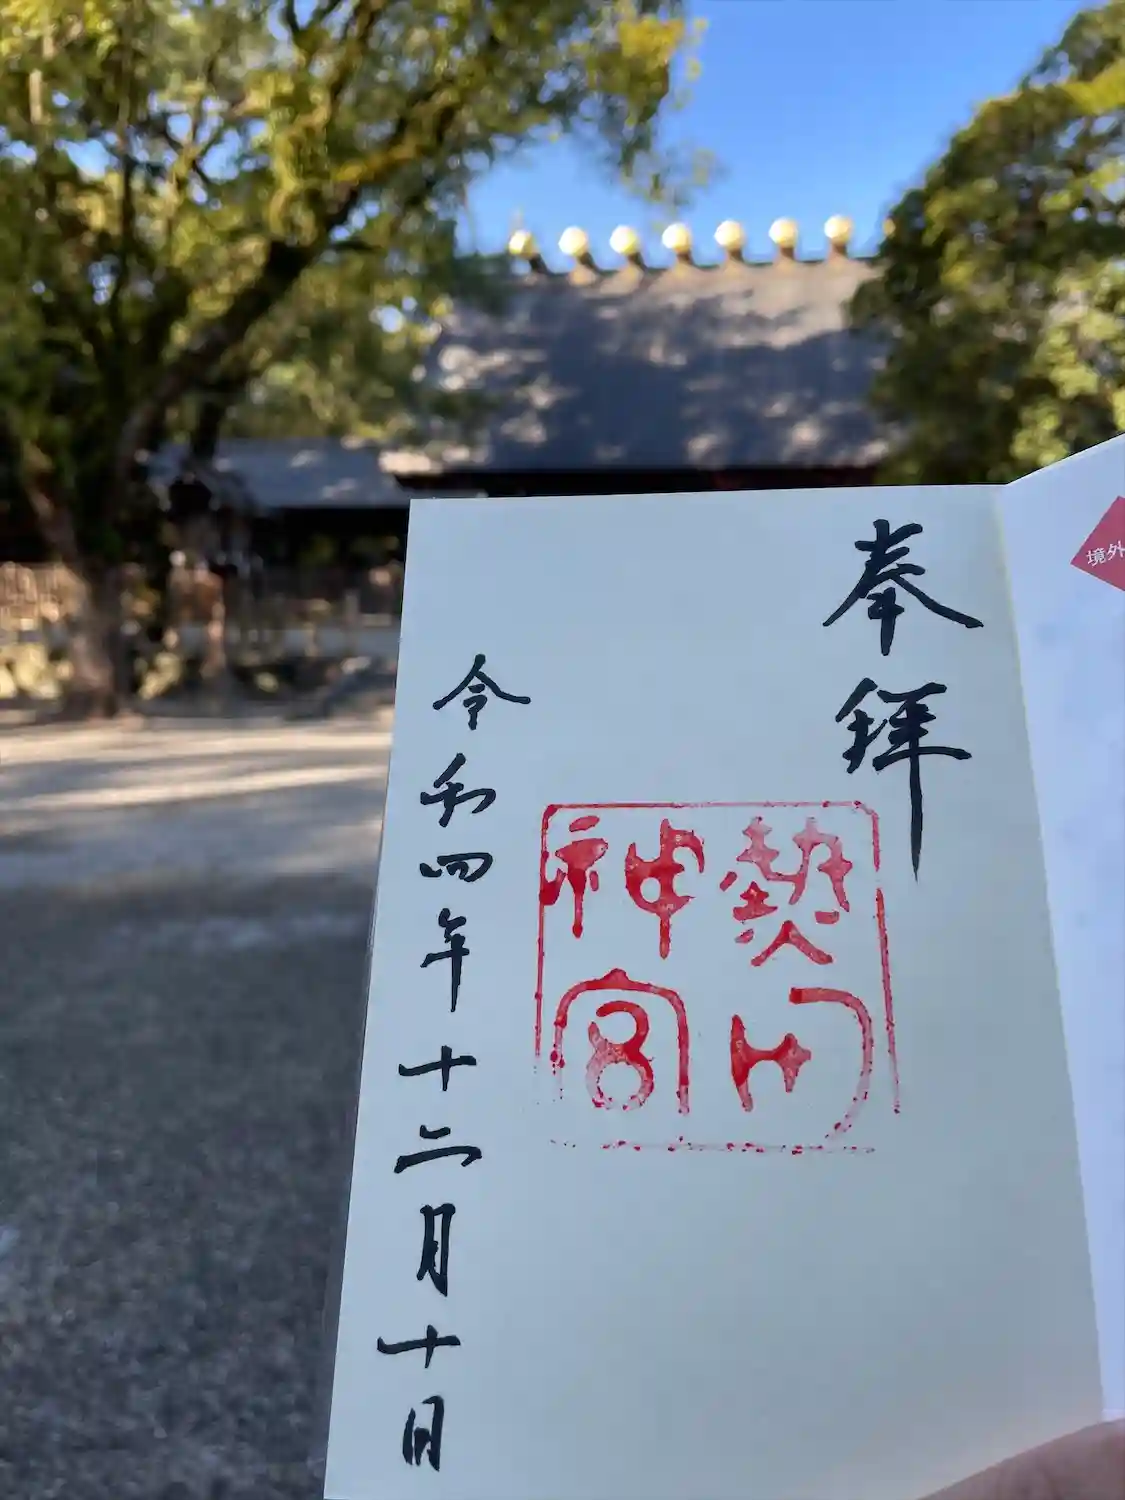 境外
奉拝
熱田
神宮
令和四年十二月十日